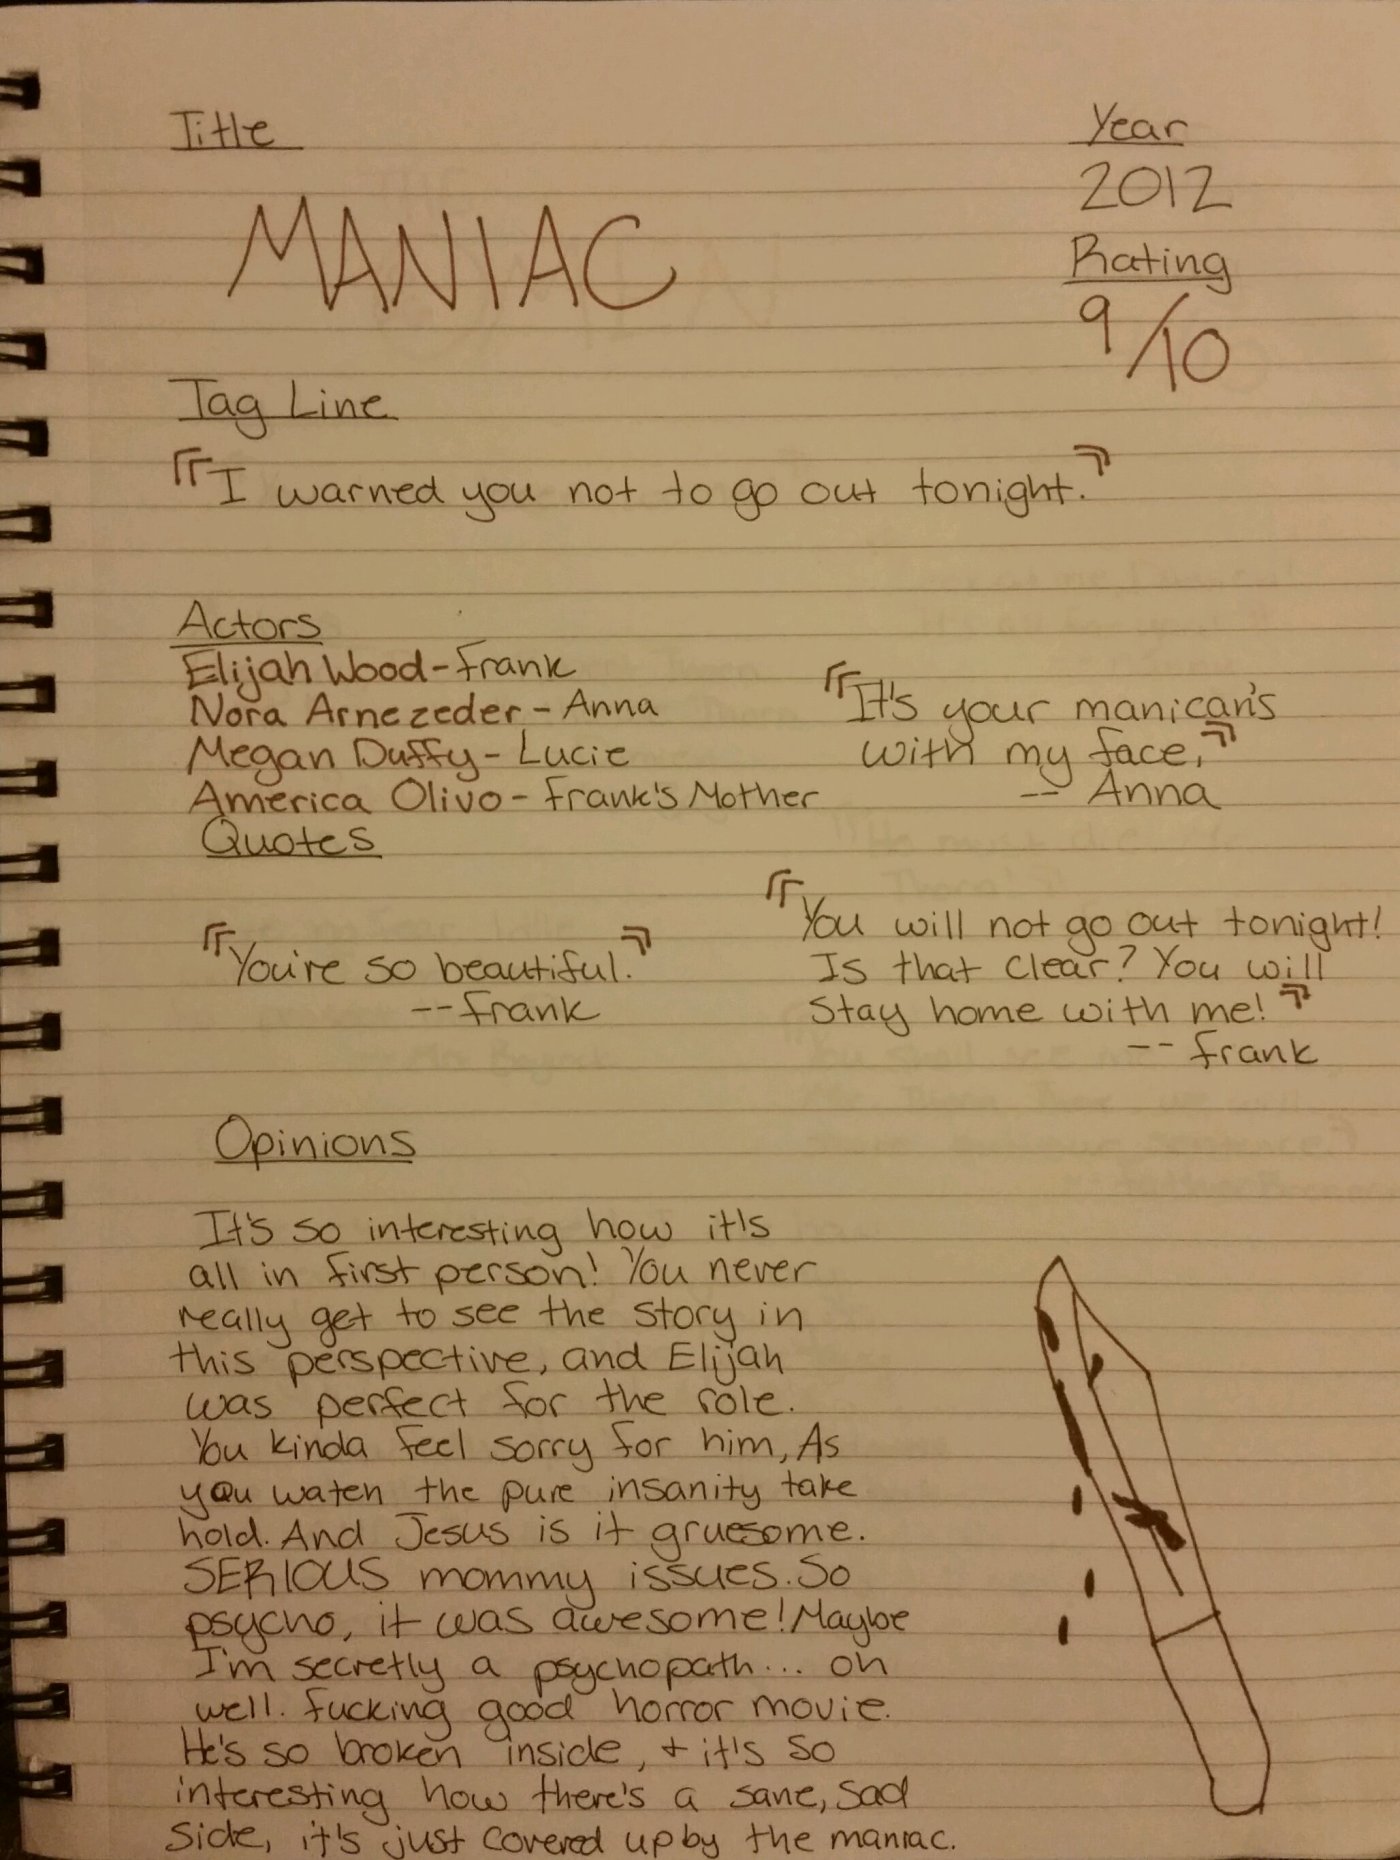 Title
MANIAC
Year
2012
Rating
9/10
Tag Line
"I warned you not to go out tonight."
Actors
Elijah Wood - Frank
Nora Arnezeder - Anna
Megan Duffy - Lucie
America Olivo - Frank's Mother
"It's your manican's
with my face."
-- Anna
Quotes
"You're so beautiful."
-- Frank
"You will not go out tonight!
Is that clear? You will
stay home with me!"
-- Frank
Opinions
It's so interesting how it's
all in first person! You never
really get to see the story in
this perspective, and Elijah
was perfect for the role.
You kinda feel sorry for him, As
you watch the pure insanity take
hold. And Jesus is it gruesome.
SERIOUS mommy issues. So
psycho, it was awesome! Maybe
I'm secretly a psychopath... oh
well. Fucking good horror movie.
He's so broken inside, + it's so
interesting how there's a sane, sad
side, it's just covered up by the maniac.